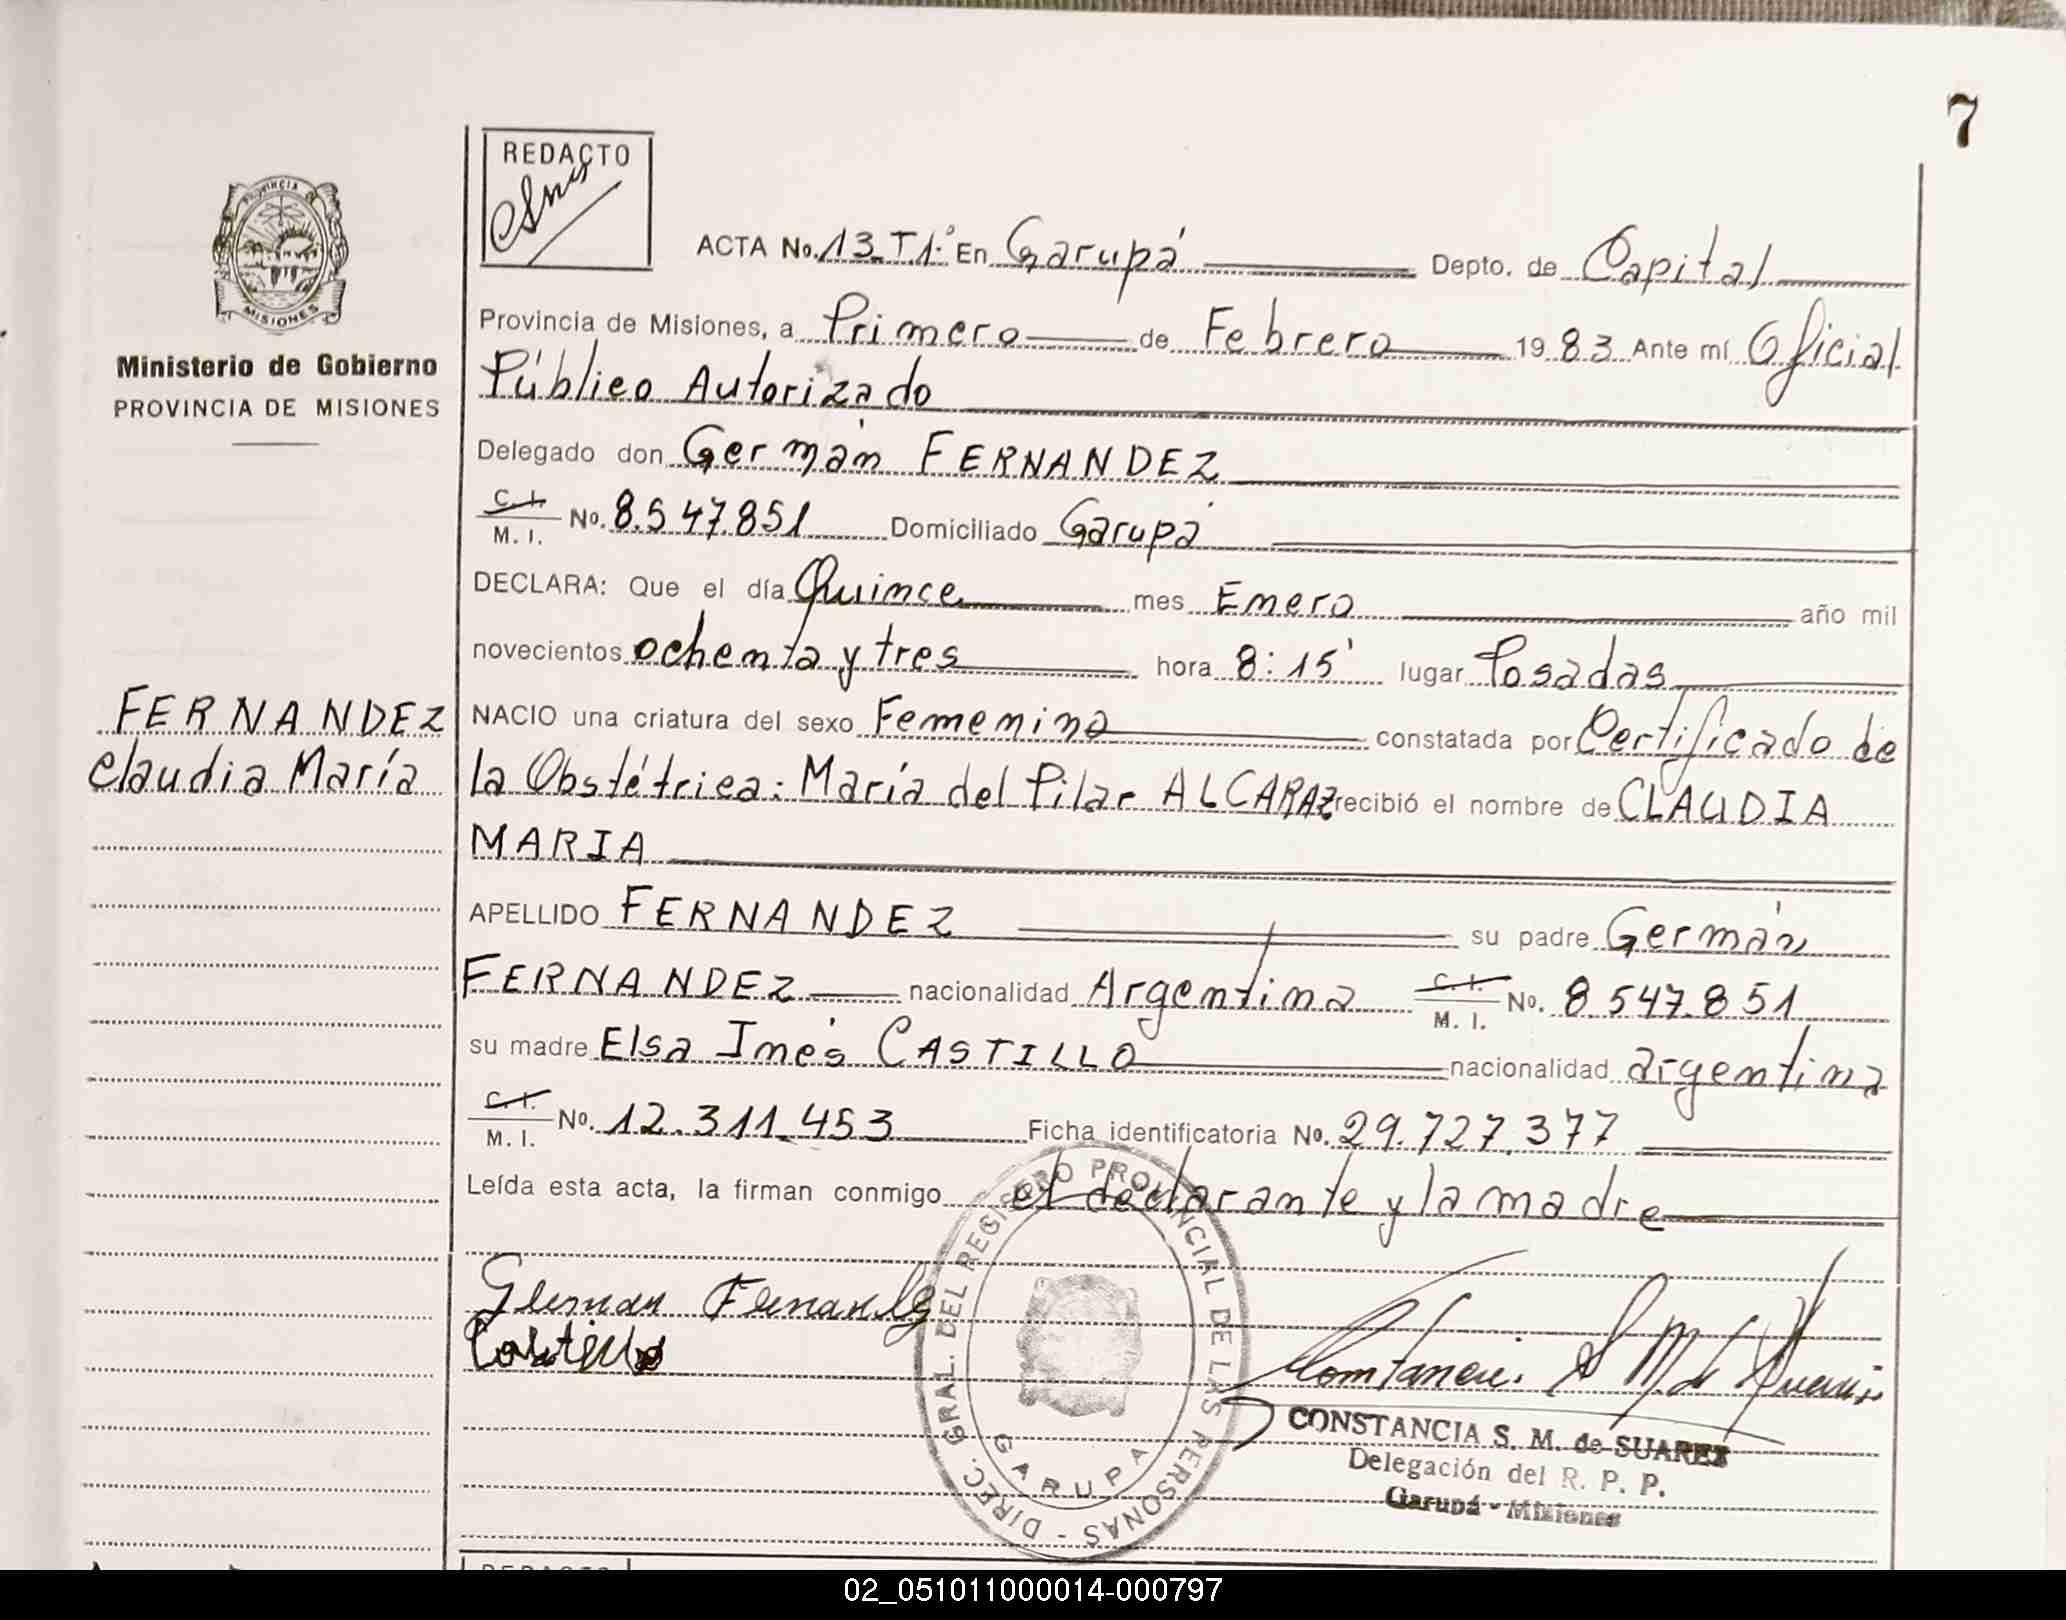 7
REDACTO
PROVINCIA DE
MISIONES
Ministerio de Gobierno
PROVINCIA DE MISIONES
ACTA No. 13 T1º En Garupá Depto. de Capital
Provincia de Misiones, a Primero de Febrero 1983 Ante mí Oficial
Público Autorizado
Delegado don Germán FERNANDEZ
C. I. M. I. No. 8.547.851 Domiciliado Garupá
DECLARA: Que el día Quince mes Enero año mil
novecientos ochenta y tres hora 8:15' lugar Posadas
FERNANDEZ
Claudia María
NACIO una criatura del sexo Femenino constatada por Certificado de
la Obstétrica: María del Pilar ALCARAZ recibió el nombre de CLAUDIA
MARIA
APELLIDO FERNANDEZ su padre Germán
FERNANDEZ nacionalidad Argentina C. I. M. I. No. 8.547.851
su madre Elsa Inés CASTILLO nacionalidad argentina
C. I. M. I. No. 12.311.453 Ficha identificatoria No. 29.727.377
Leída esta acta, la firman conmigo el declarante y la madre
German Fernandez
Castillo
DIREC. GRAL. DEL REGISTRO PROVINCIAL DE LAS PERSONAS -
GARUPA
CONSTANCIA S. M. de SUAREZ
Delegación del R. P. P.
Garupá - Misiones
REDACTO
02_051011000014-000797